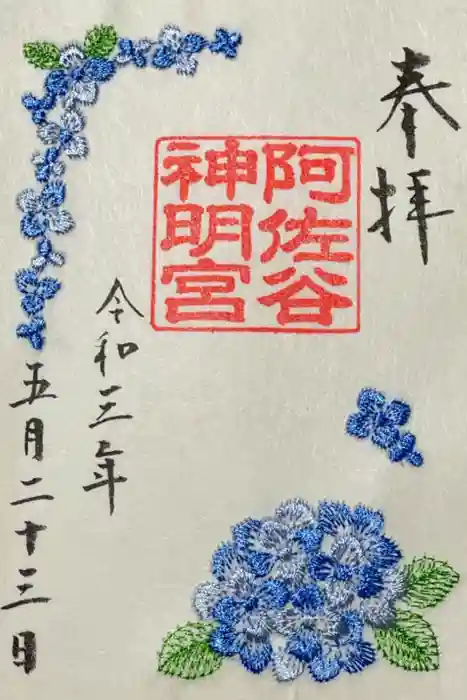 奉拝
阿佐谷
神明宮
令和三年
五月二十三日